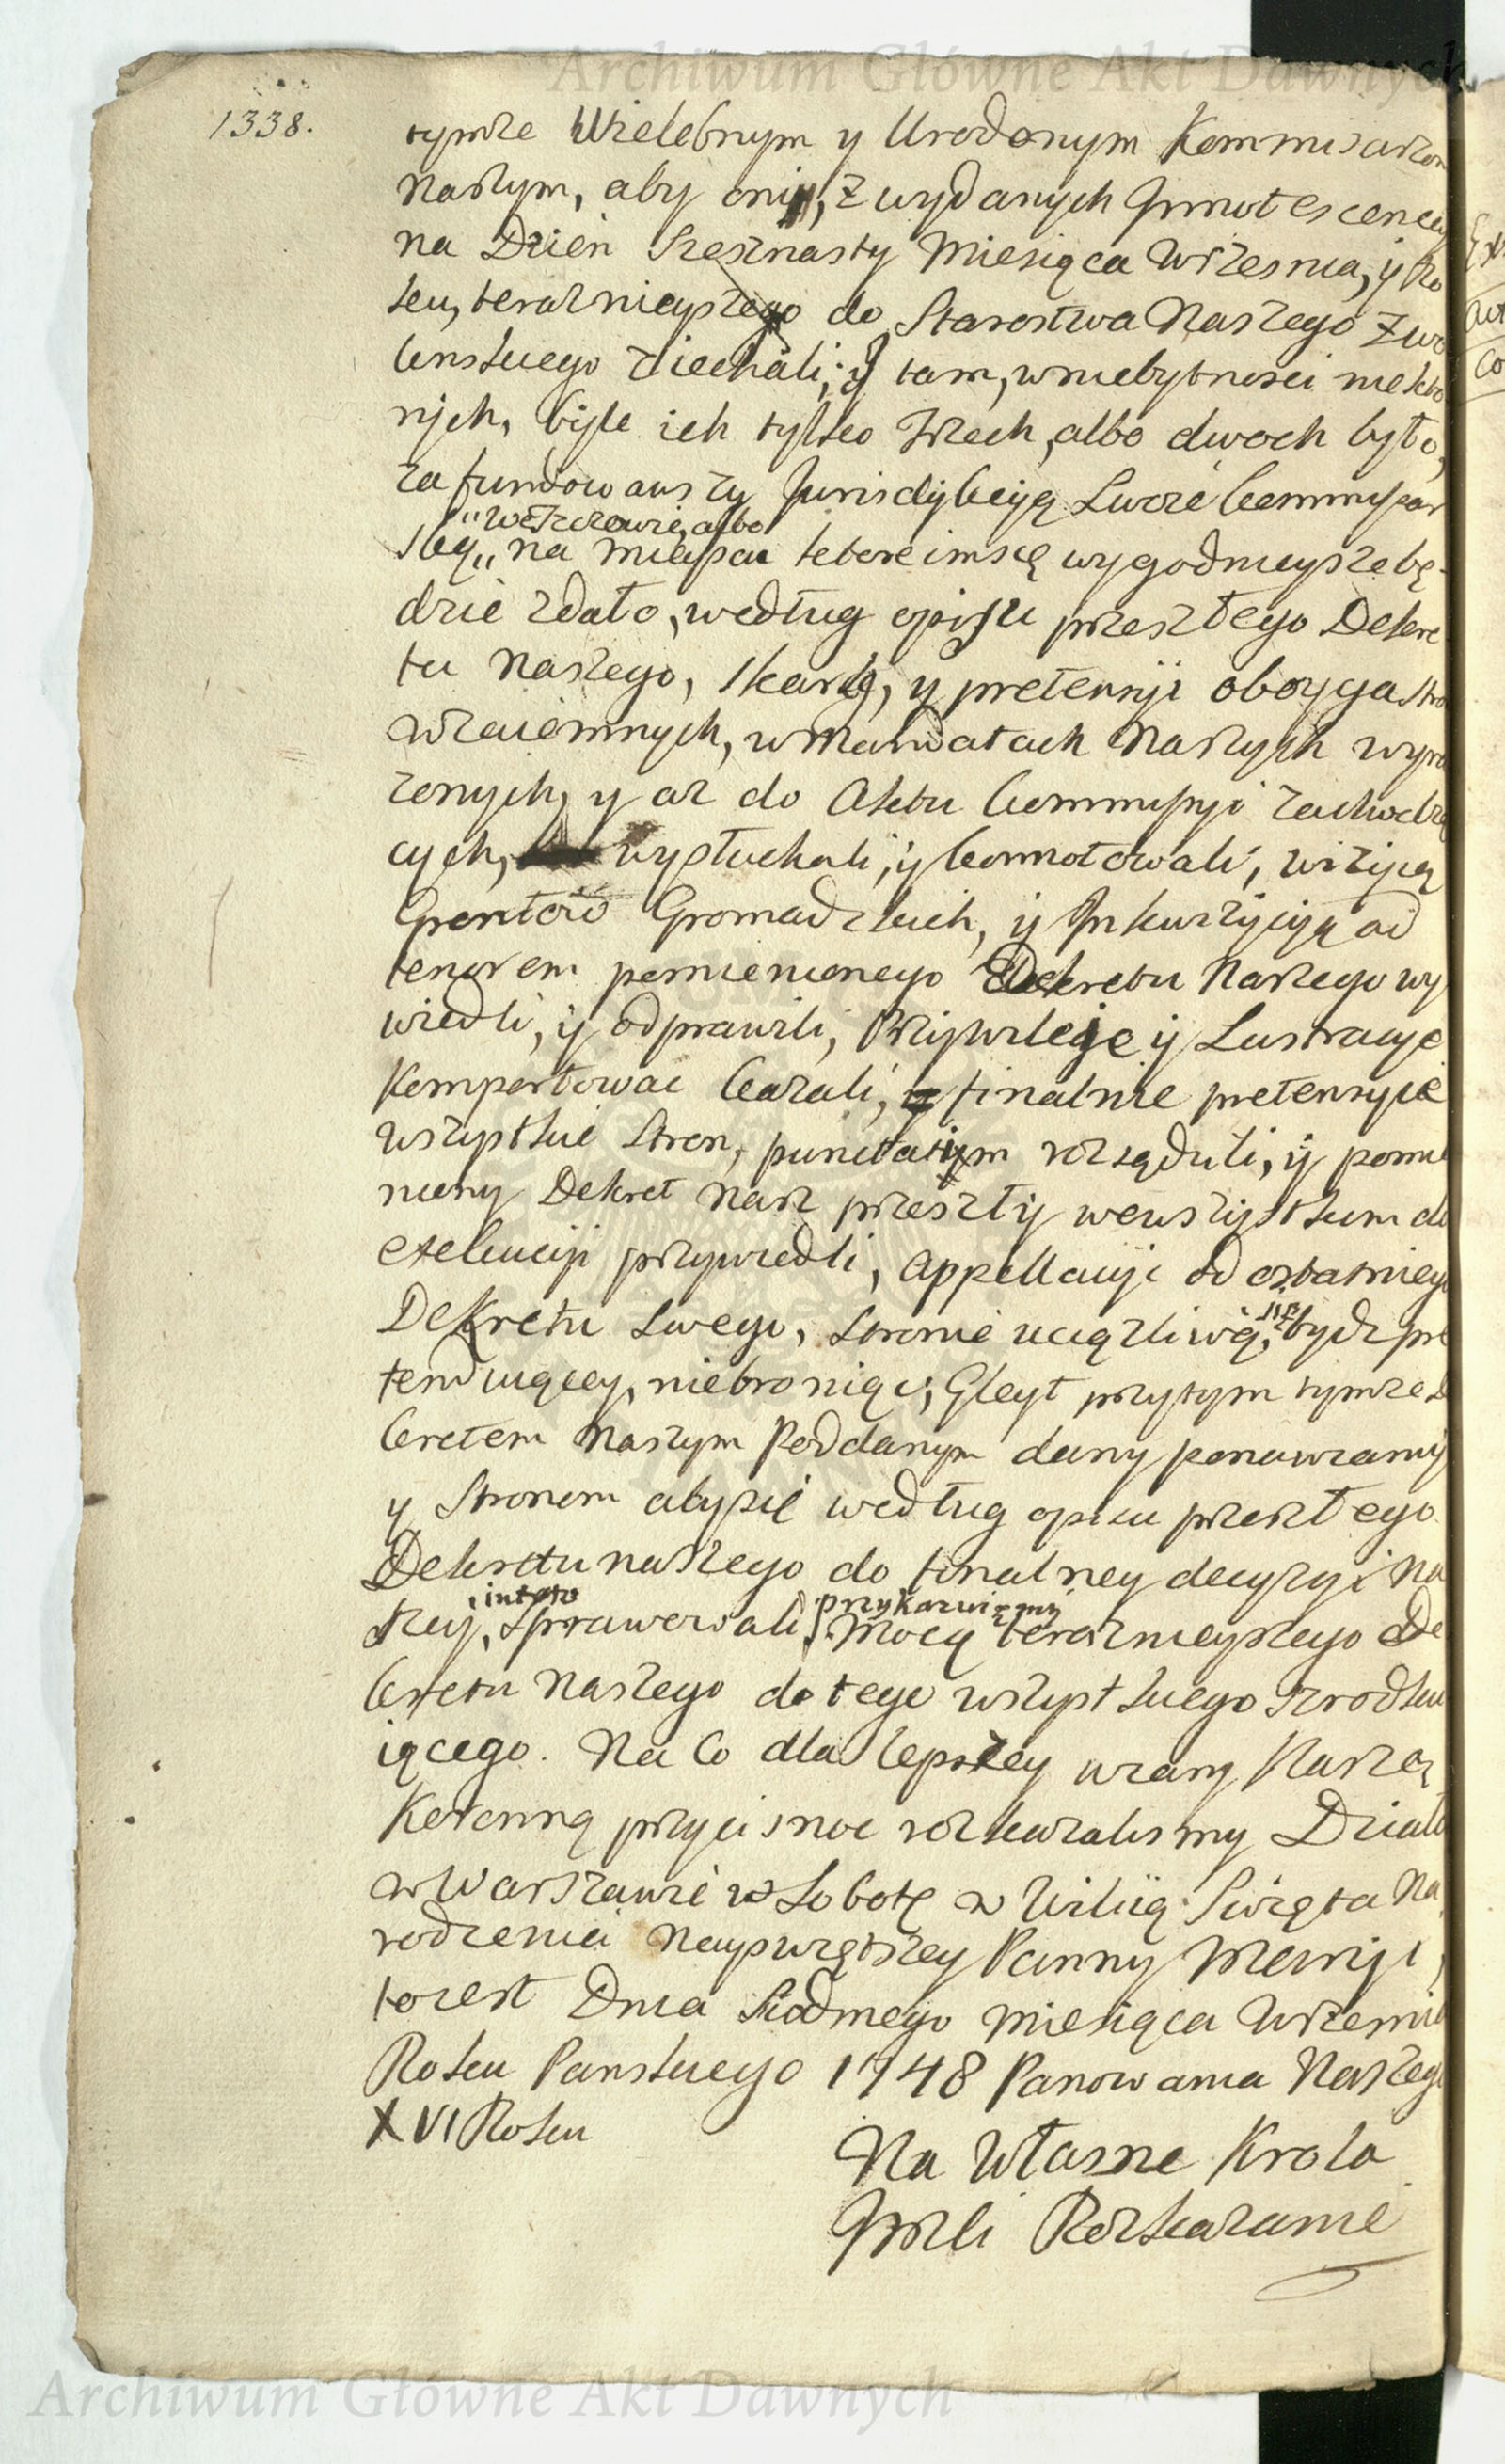 Archiwum Główne Akt Dawnych
1338.
tymże Wielebnym y Urodzonym Kommisarzom
Naszym, aby oni, z wydanych Innotescencyi
na Dzień Szesnasty Miesiąca Wrzesnia, y Ro
ku, teraznieyszego do Starostwa Naszego Zwo
lenskiego ziechali; y tam, w niebytnosci niekto
rych, byle ich tylko Trzech, albo dwoch było,
zafundowawszy Jurisdykcyą Swoię Commissar
"w Tczowie, albo
ską" na mieyscu ktore im się wygodnieysze bę-
dzie zdało, według opisu przeszłego Dekre
tu Naszego, skarg, y pretensyi oboyga stro
wzaiemnych, w Mandatach Naszych wyra
żonych, y aż do Aktu Commissyi zachodzą
cych, wysłuchali, y connotowali, wizyą
Gruntow Gromadzkich, y Inkwizycyą ad
tenorem pomienionego Dekretu Naszego wy
wiedli, y odprawili, Przywileje y Lustracye
Komportować kazali, finalnie pretensyie
wszystkie Stron, punctatim rozsądzili, y pomie
niony Dekret Nasz przeszły we wszystkim do
exekucyi przywiedli, Appellacyi od ostatniego
Dekretu Swego, Stronie uciążliwą, bydz pre
się
tenduiącey, niebroniąc; Gleyt przytym tymże De
kretem Naszym Poddanym dany ponawiamy
y Stronom aby się według opisu przeszłego
Dekretu naszego do finalney decyzyi Na
in toto przykazuiemy
szey, sprawowali, Mocą teraznieyszego De
kretu Naszego do tego wszystkiego szrodku
iącego. Na Co dla lepszey wiary Naszą
Koronną przycisnoć rozkazalismy Działo
w Warszawie w Sobotę w Wilią Swięta Na
rodzenia Nayswiętszey Panny Maryi,
to iest Dnia Siodmego Miesiąca Wrzesnia
Roku Panskiego 1748 Panowania Naszego
XVI Roku
Na Własne Krola
Jmsci Rozkazanie
Archiwum Główne Akt Dawnych